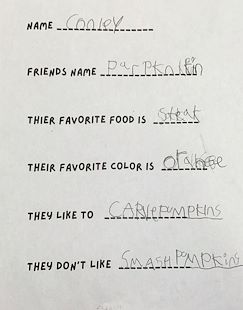 NAME Conley
FRIENDS NAME
THIER FAVORITE FOOD IS Steak
THEIR FAVORITE COLOR IS
THEY LIKE TO CARVE PUMPKINS
THEY DON'T LIKE SMASH PUMPKINS